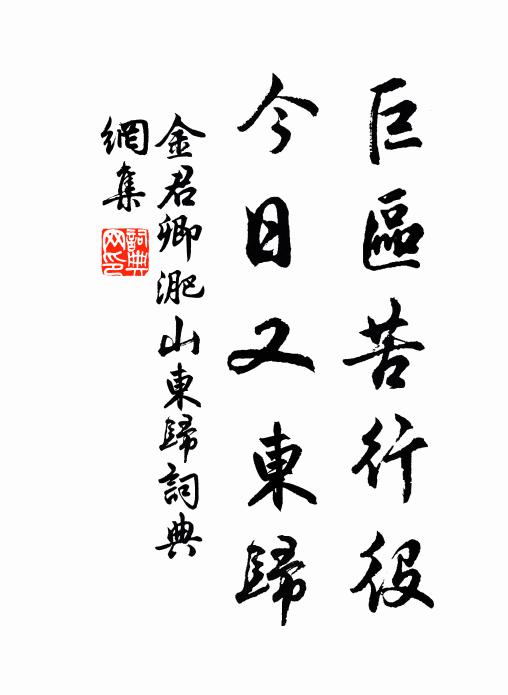 巨區苦行役
今日又東歸
金君卿淝山東歸詞典
網集
詞典網印